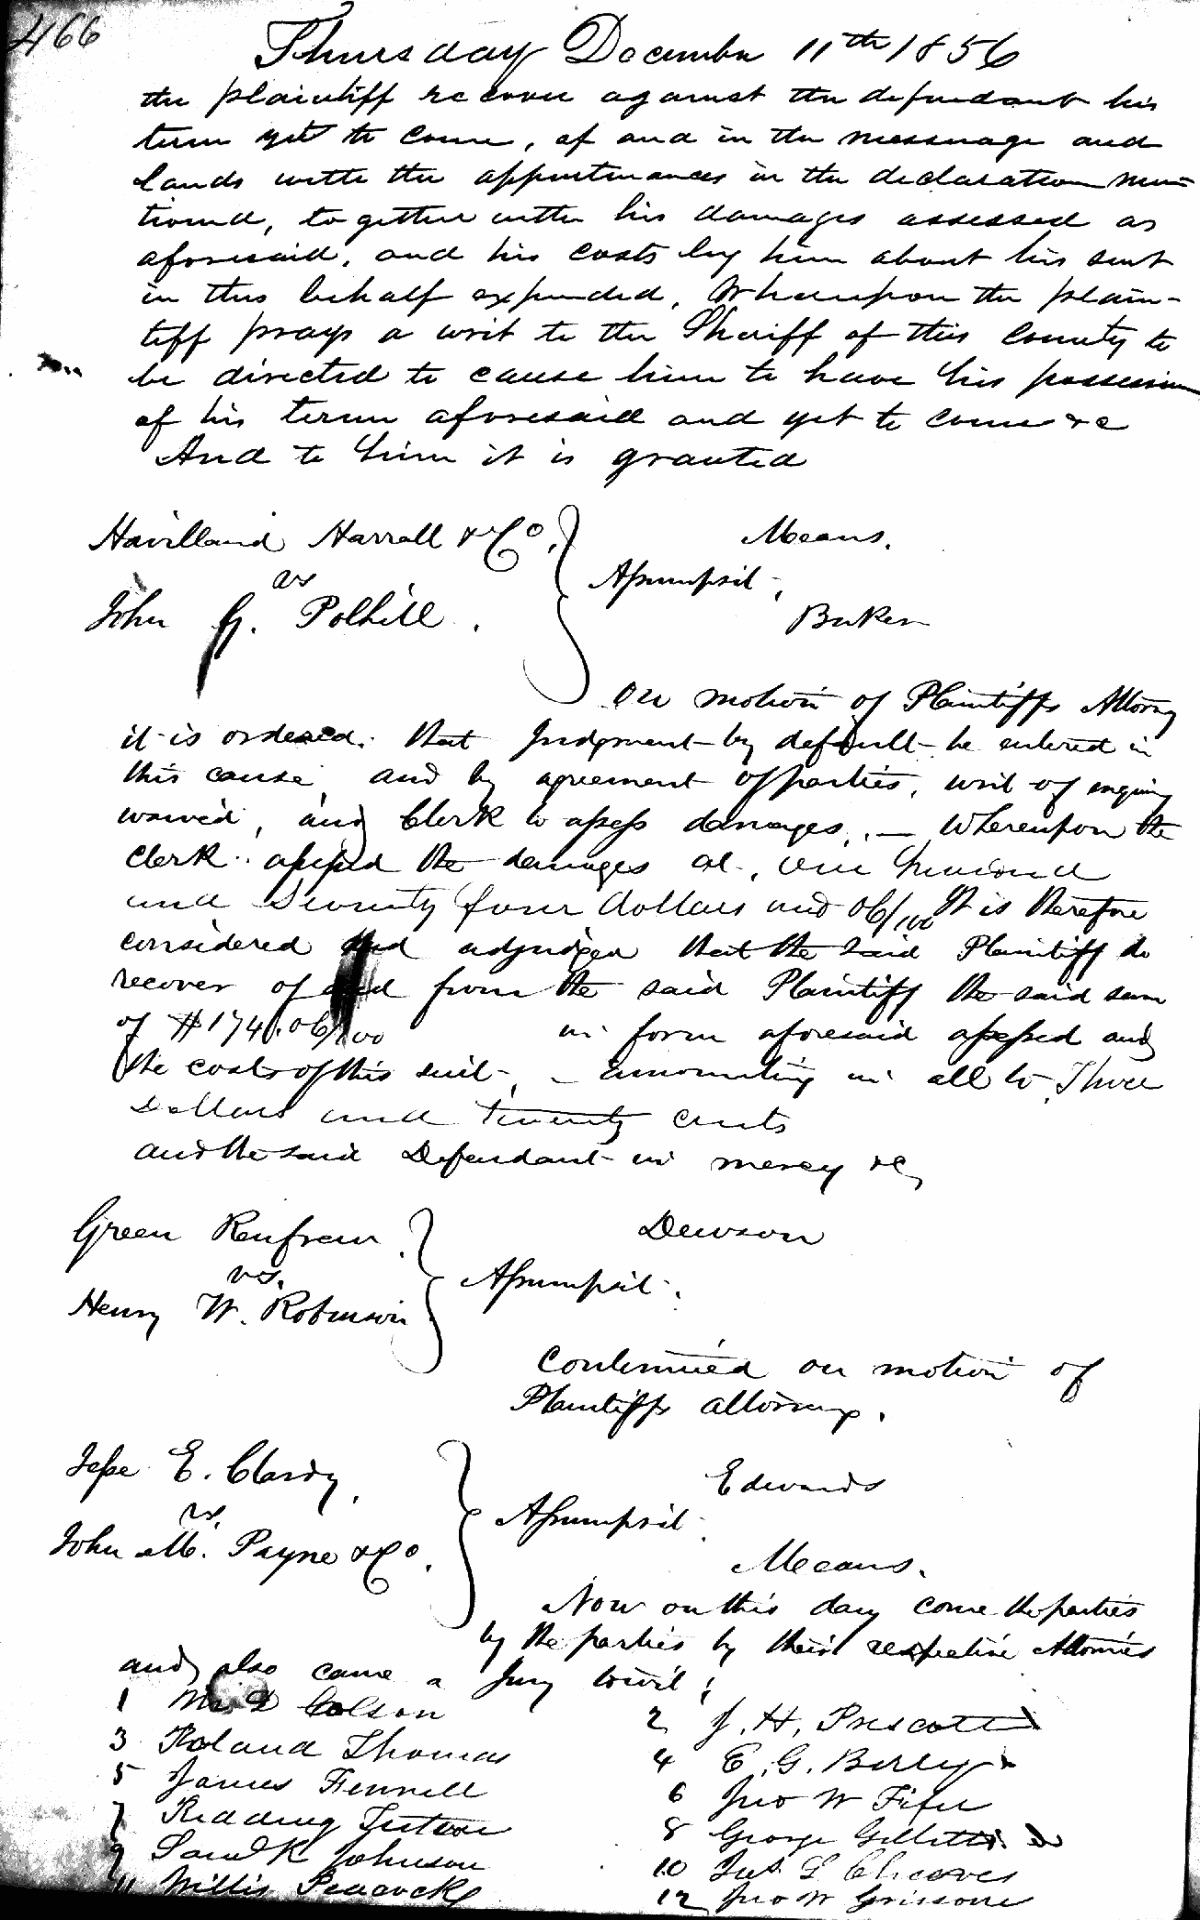 466
Thursday December 11th 1856
the plaintiff recover against the defendant his
term yet to come, of and in the messuage and
lands with the appurtenances in the declaration men=
tioned, together with his damages assessed as
aforesaid, and his costs by him about his suit
in this behalf expended, Whereupon the plain-
tiff prays a writ to the Sheriff of this County to
be directed to cause him to have his possession
of his term aforesaid and yet to come &c
And to him it is granted
Havilland Harrall & Co.
Means.
vs
Assumpsit.
John G. Polhill.
Baker
On motion of Plaintiffs Attorny
it is ordered. that Judgment by default be entered in
this cause, and by agreement of parties, writ of inquiry
waived, and Clerk to assess damages. — Whereupon the
Clerk assessed the damages at, One hundred
and Seventy four dollars and 06/100 It is therefore
considered and adjudged that the said Plaintiff do
recover of and from the said Plaintiff the said sum
of $174.06/100 in form aforesaid assessed and
the costs of this suit, – amounting in all to Three
Dollars and twenty cents
and the said Defendant in mercy &c,
Green Renfrew
Dewson
vs.
Assumpsit.
Henry W. Robinson
Continued on motion of
Plaintiffs attorney.
Jesse E. Clardy,
Edwards
vs.
Assumpsit.
John M. Payne & Co.
Means.
Now on this day come the parties
by the parties by their respective Attornies
and also came a Jury towit;
1 Colson
2 J. H. Prescott
3 Roland Thomas
4 E. G. Berley
5 James Fennell
6 Jno W Fife
7 Redding
8 George Gillett
9 Saml K Johnson
10 L Cheaves
11 Willis Peacock
12 Jno W Grissone